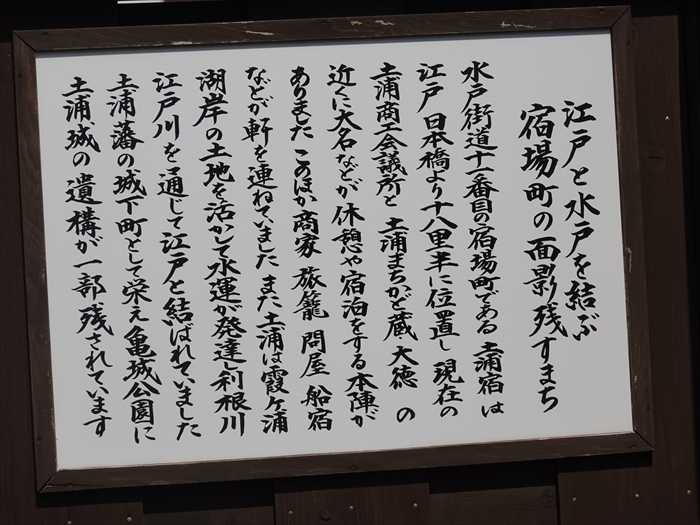 江戸と水戸を結ぶ
宿場町の面影残すまち
水戸街道十一番目の宿場町である 土浦宿 は
江戸 日本橋より十八里半に位置し 現在の
土浦商工会議所と 土浦まちかど蔵・大徳 の
近くに大名などが休憩や宿泊をする本陣が
ありました このほか商家 旅籠 問屋 船宿
などが軒を連ねていました また土浦は霞ヶ浦
湖岸の土地を活かして水運が発達し利根川
江戸川を通じて江戸と結ばれていました
土浦藩の城下町として栄え 亀城公園に
土浦城の遺構が一部残されています